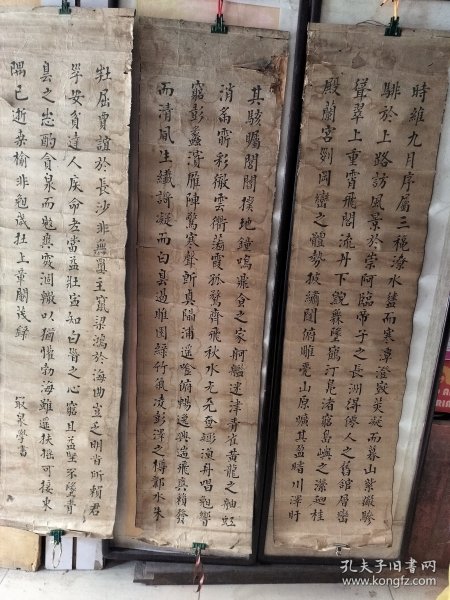 時維九月序屬三穐潦水盡而寒潭澄煙光凝而暮山紫儼驂
騑於上路訪風景於崇阿臨帝子之長洲得仙人之舊館層巒
聳翠上重霄飛閣流丹下臨無地鶴汀鳧渚窮島嶼之縈迴桂
殿蘭宮列岡巒之體勢披繡闥俯雕甍山原曠其盈視川澤盱
其駭矚閭閻撲地鐘鳴鼎食之家舸艦迷津青雀黃龍之舳虹
消雨霽彩徹雲衢落霞孤鶩齊飛秋水長天一色漁舟唱晚響
窮彭蠡濱雁陣驚寒聲斷衡陽浦遙吟俯暢逸興遄飛爽籟發
而清風生纖歌凝而白雲遏睢園綠竹氣凌彭澤之樽鄴水朱
牡屈賈誼於長沙非無聖主竄梁鴻於海曲豈乏明時所賴君
子安貧達人知命老當益壯寧知白首之心窮且益堅不墜青
雲之志酌貪泉而覺爽處涸轍以猶懽北海雖遙扶搖可接東
隅已逝桑榆非晚歲在上章
泉學書
孔夫子旧书网
www.kongfz.com